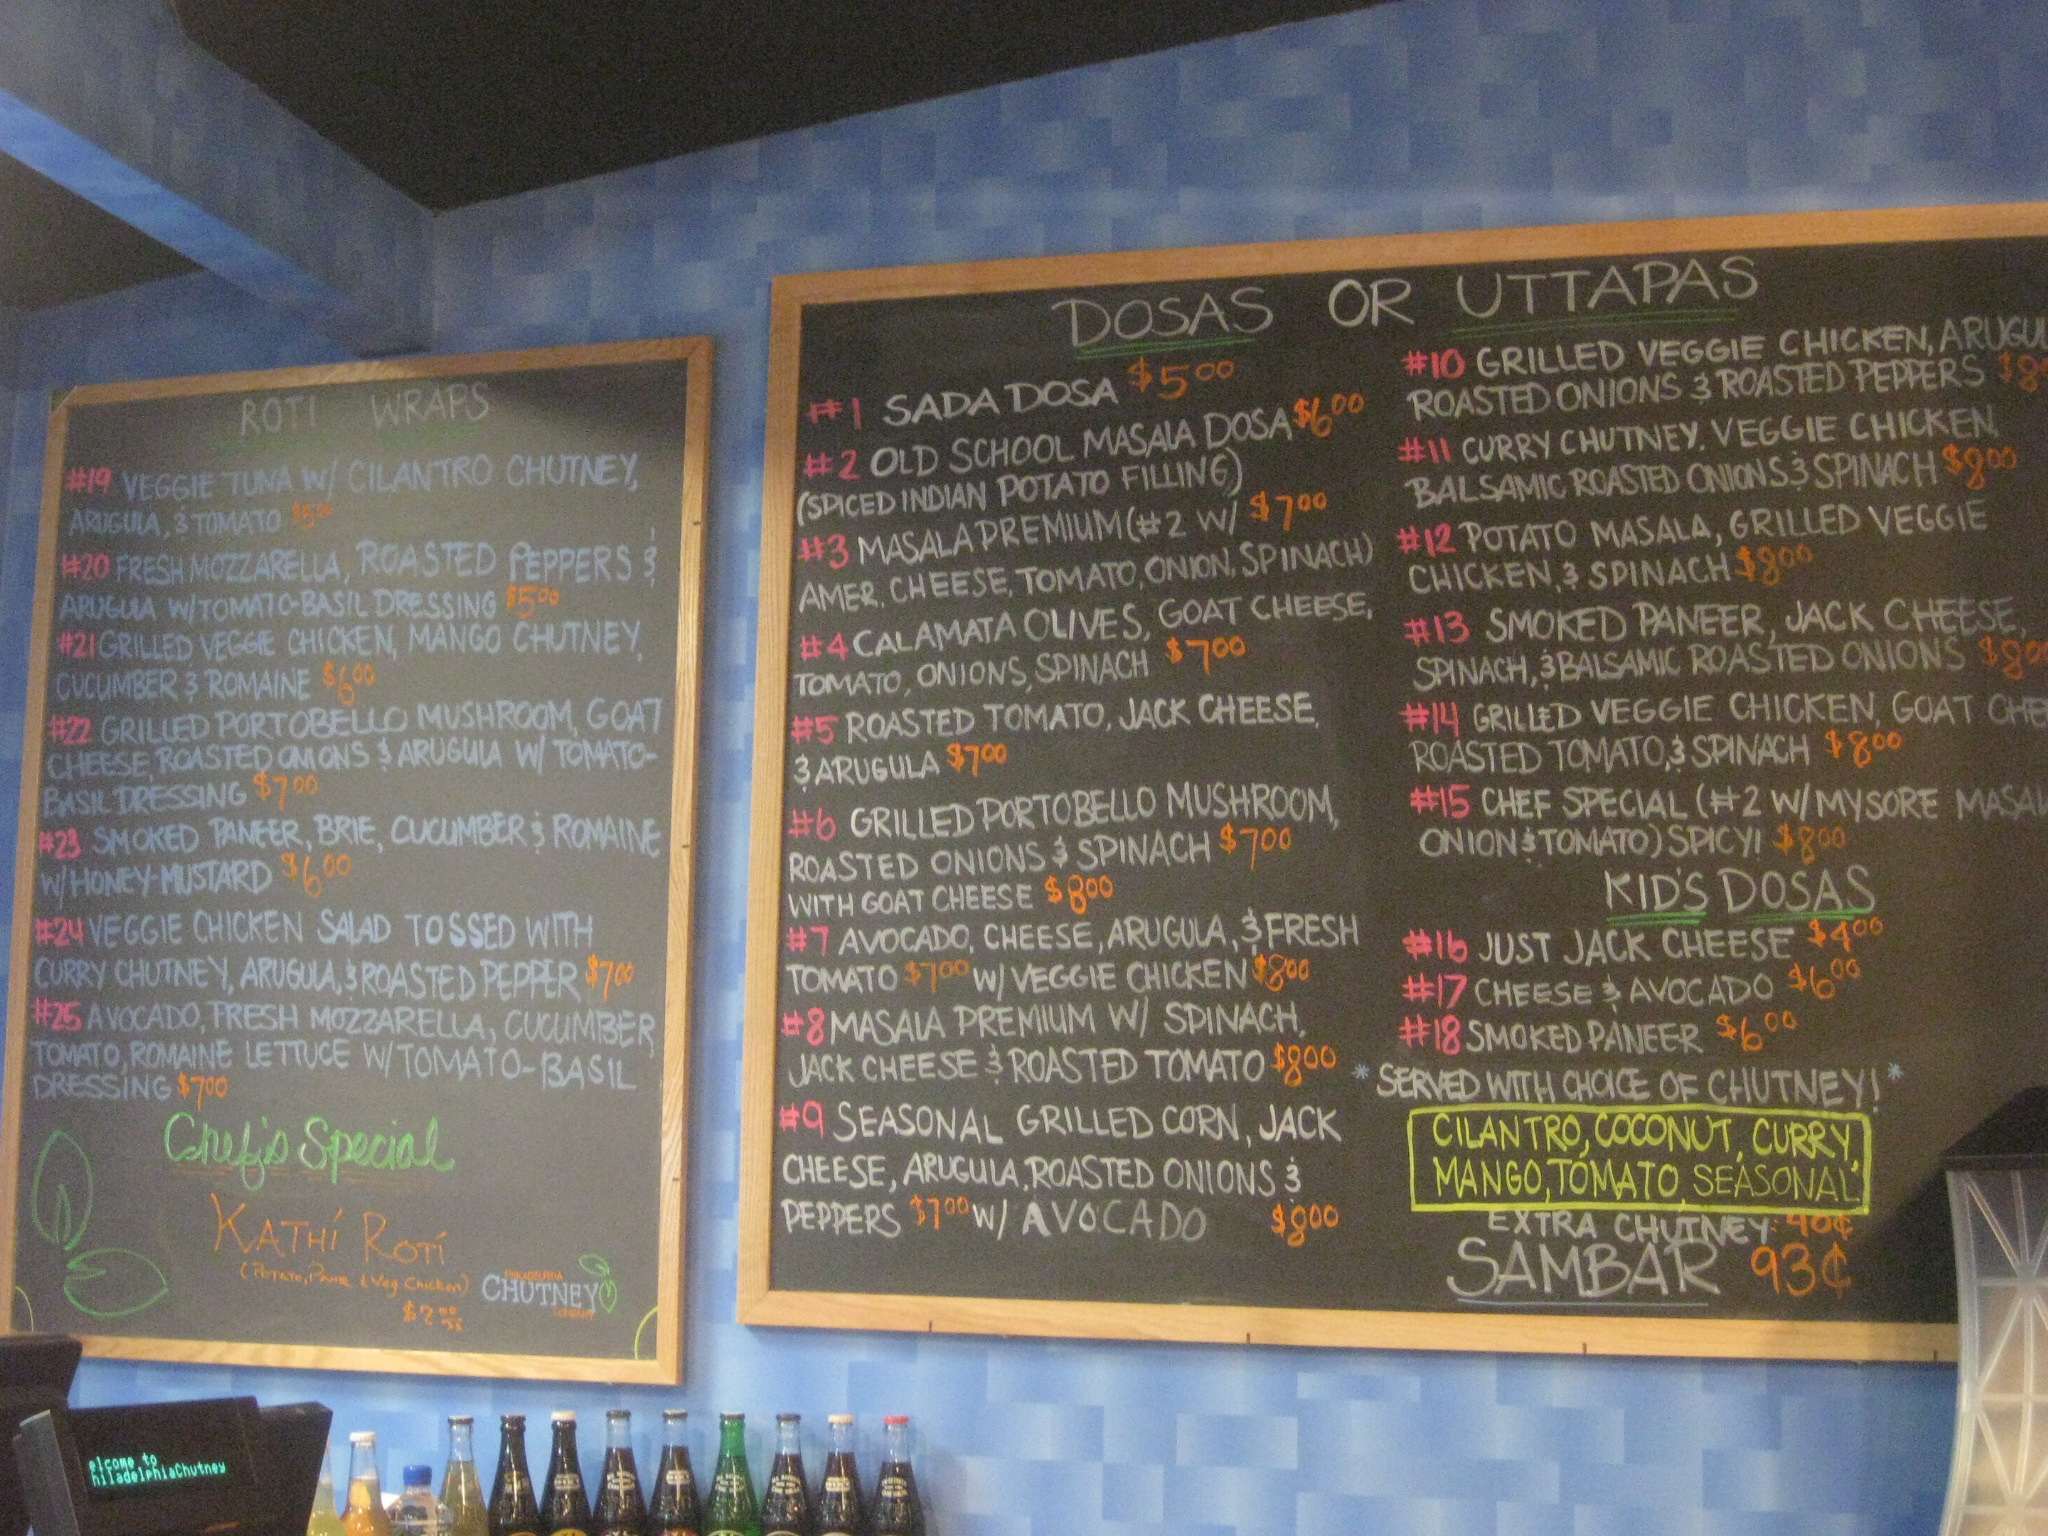 ROTI WRAPS
#19 VEGGIE TUNA W/ CILANTRO CHUTNEY,
ARUGULA, & TOMATO $5.00
#20 FRESH MOZZARELLA, ROASTED PEPPERS &
ARUGULA W/TOMATO-BASIL DRESSING $5.00
#21 GRILLED VEGGIE CHICKEN, MANGO CHUTNEY,
CUCUMBER & ROMAINE $6.00
#22 GRILLED PORTOBELLO MUSHROOM, GOAT
CHEESE, ROASTED ONIONS & ARUGULA W/ TOMATO-
BASIL DRESSING $7.00
#23 SMOKED PANEER, BRIE, CUCUMBER & ROMAINE
W/HONEY-MUSTARD $6.00
#24 VEGGIE CHICKEN SALAD TOSSED WITH
CURRY CHUTNEY, ARUGULA, & ROASTED PEPPER $7.00
#25 AVOCADO, FRESH MOZZARELLA, CUCUMBER,
TOMATO, ROMAINE LETTUCE W/TOMATO-BASIL
DRESSING $7.00
Chef's Special
KATHI ROTI
(Potato, & Veg Chicken)
PHILADELPHIA
CHUTNEY
COMPANY
DOSAS OR UTTAPAS
#1 SADA DOSA $5.00
#2 OLD SCHOOL MASALA DOSA $6.00
(SPICED INDIAN POTATO FILLING)
#3 MASALA PREMIUM (#2 W/ $7.00
AMER. CHEESE, TOMATO, ONION, SPINACH)
#4 CALAMATA OLIVES, GOAT CHEESE,
TOMATO, ONIONS, SPINACH $7.00
#5 ROASTED TOMATO, JACK CHEESE,
& ARUGULA $7.00
#6 GRILLED PORTOBELLO MUSHROOM,
ROASTED ONIONS & SPINACH $7.00
WITH GOAT CHEESE $8.00
#7 AVOCADO, CHEESE, ARUGULA, & FRESH
TOMATO $7.00 W/ VEGGIE CHICKEN $8.00
#8 MASALA PREMIUM W/ SPINACH,
JACK CHEESE & ROASTED TOMATO $8.00
#9 SEASONAL GRILLED CORN, JACK
CHEESE, ARUGULA, ROASTED ONIONS &
PEPPERS $7.00 W/ AVOCADO $8.00
#10 GRILLED VEGGIE CHICKEN, ARUGUL
ROASTED ONIONS & ROASTED PEPPERS $8
#11 CURRY CHUTNEY, VEGGIE CHICKEN
BALSAMIC ROASTED ONIONS & SPINACH $8.00
#12 POTATO MASALA, GRILLED VEGGIE
CHICKEN, & SPINACH $8.00
#13 SMOKED PANEER, JACK CHEESE,
SPINACH, & BALSAMIC ROASTED ONIONS $8.0
#14 GRILLED VEGGIE CHICKEN, GOAT CHE
ROASTED TOMATO, & SPINACH $8.00
#15 CHEF SPECIAL (#2 W/MYSORE MASAL
ONION & TOMATO) SPICY! $8.00
KID'S DOSAS
#16 JUST JACK CHEESE $4.00
#17 CHEESE & AVOCADO $6.00
#18 SMOKED PANEER $6.00
*SERVED WITH CHOICE OF CHUTNEY!*
CILANTRO, COCONUT, CURRY,
MANGO, TOMATO, SEASONAL
EXTRA CHUTNEY: 40¢
SAMBAR 93¢
elcome to
hiladelphiaChutney